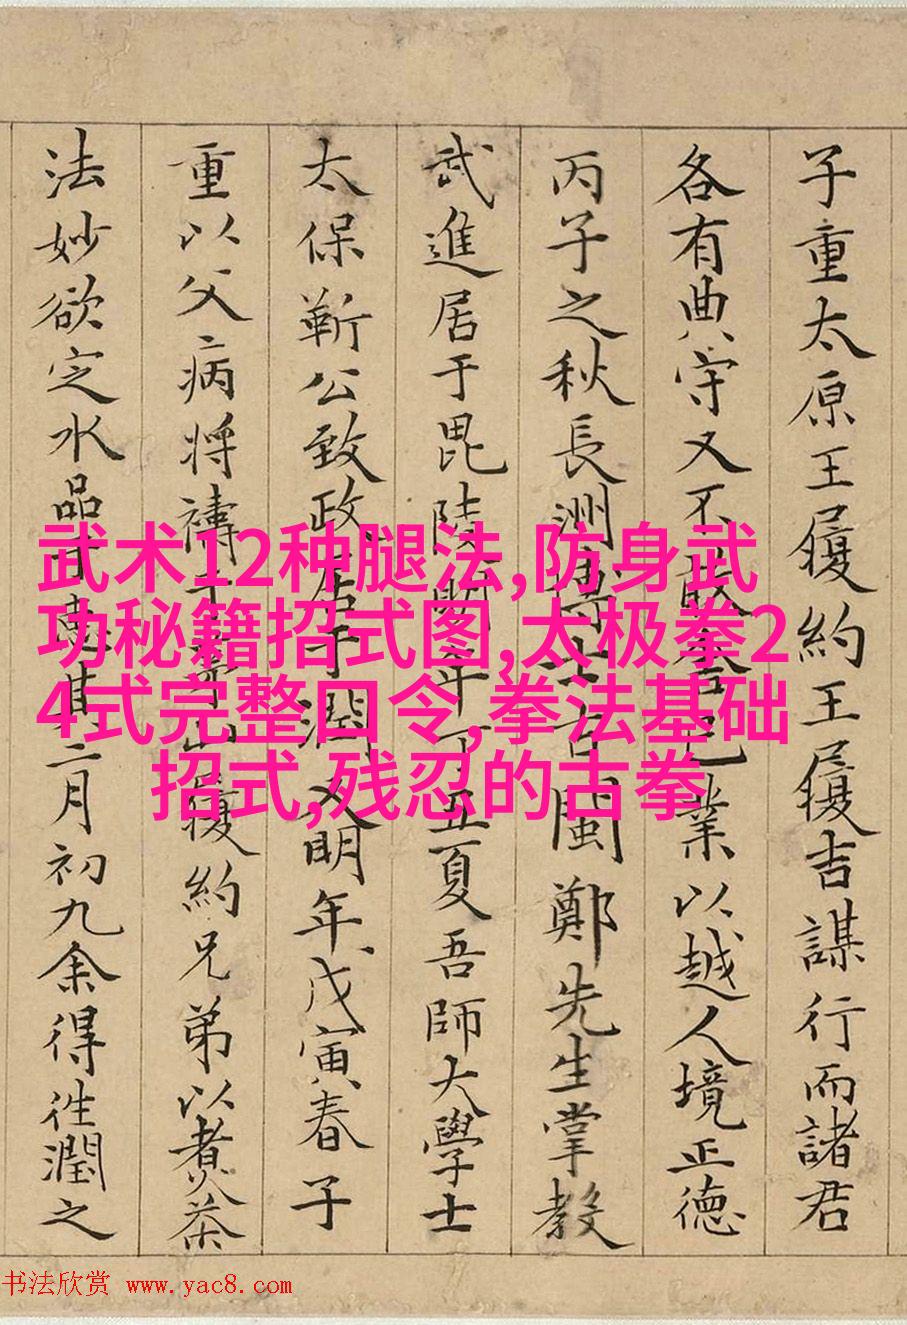 子重太原王履約王履吉謀行而諸君
各有典守又不能舍己業以越人境正德
丙子之秋長洲博士古閩鄭先生掌教
武進居于毘陵明年丁丑夏吾師大學士
太保靳公致政居于潤又明年戊寅春子
重以父病將禱于茅山履約兄弟以煮茶
法妙欲定水品于惠其二月初九余得往潤之
武术12种腿法,防身武
功秘籍招式图,太极拳2
4式完整口令,拳法基础
招式,残忍的古拳
书法欣赏 www.yac8.com